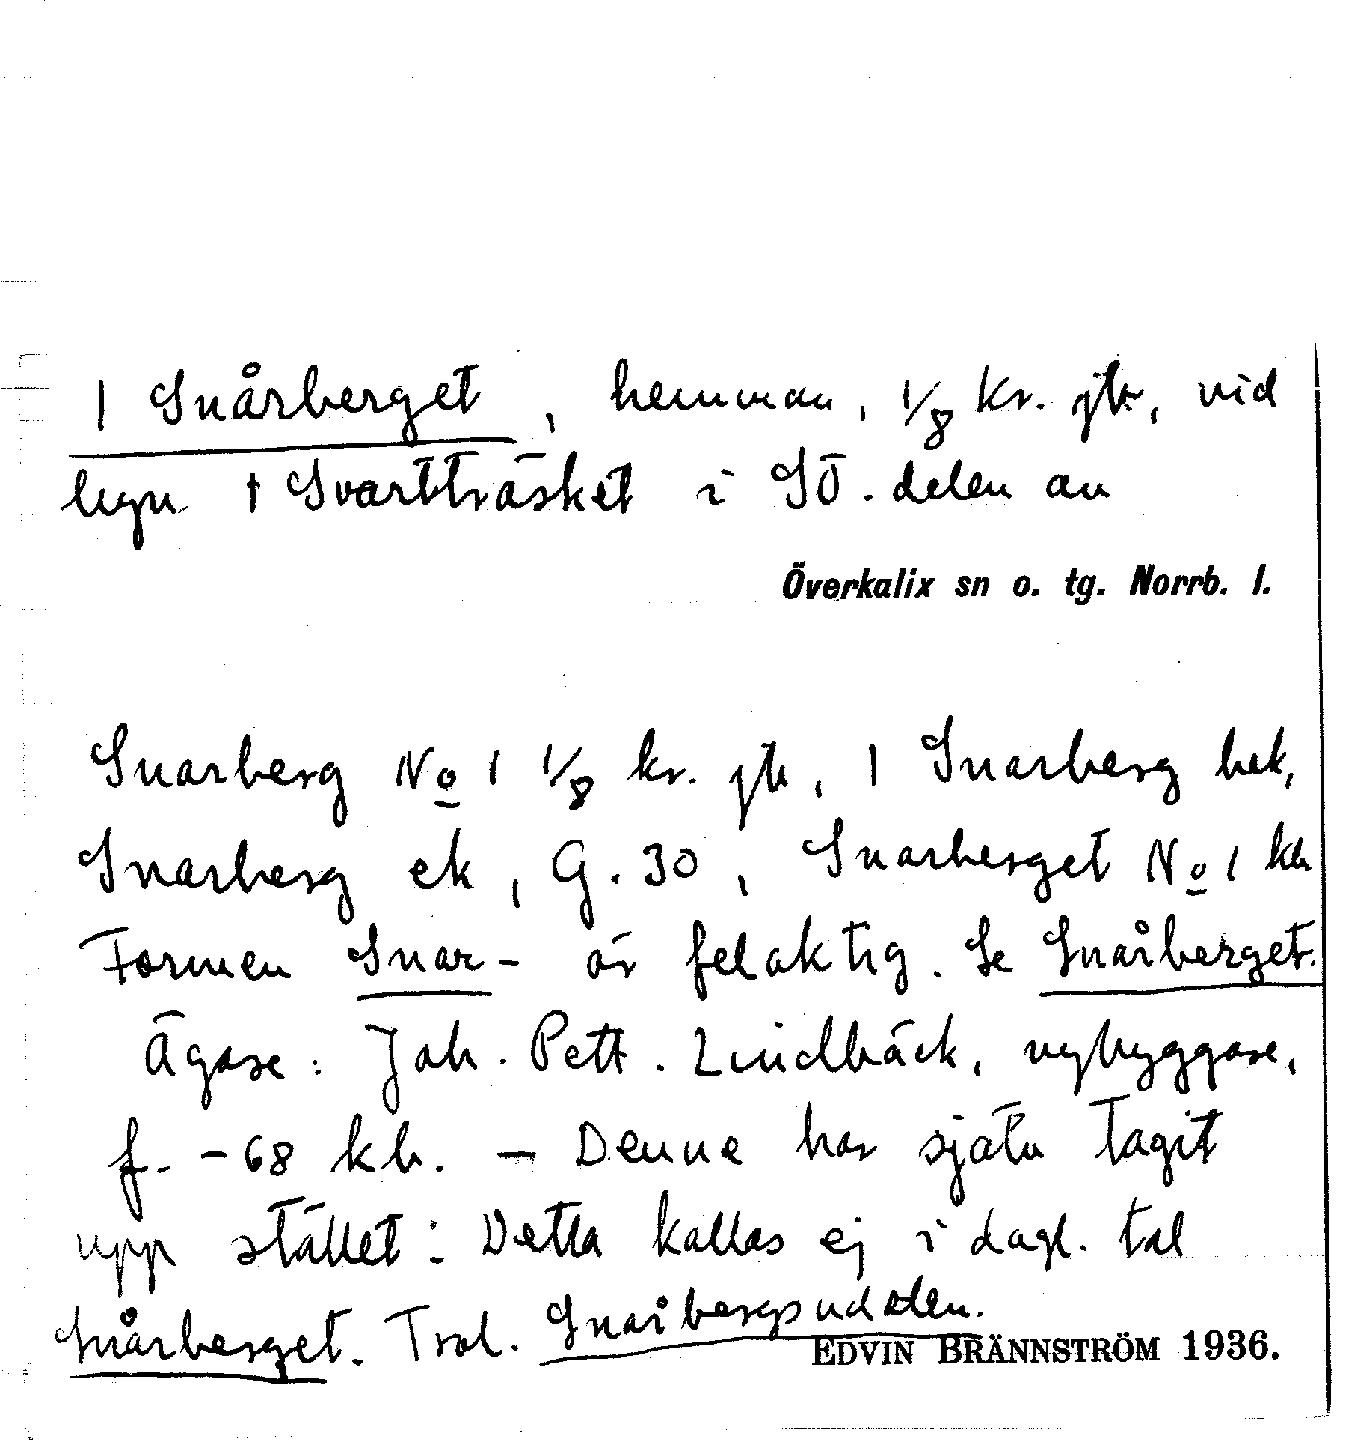 1 Snårberget, hemman, 1/8 kr. jtr, vid
lign † Svartträsket i SÖ. delen av
Överkalix sn o. tg. Norrb. l.
Snarberg No 1 1/8 kr. jtr, 1 Snarberg hek,
Snarberg ek, G. 30, Snarberget No 1 kb
Formen Snar- är felaktig. Se Snårberget.
Ägare: Joh. Pett. Lindbäck, nybyggare,
f. -68 kb. - Denne har själv tagit
upp stället: Detta kallas ej i dagl. tal
Snårberget. Trol. Snårbergsudden.
EDVIN BRÄNNSTRÖM 1936.